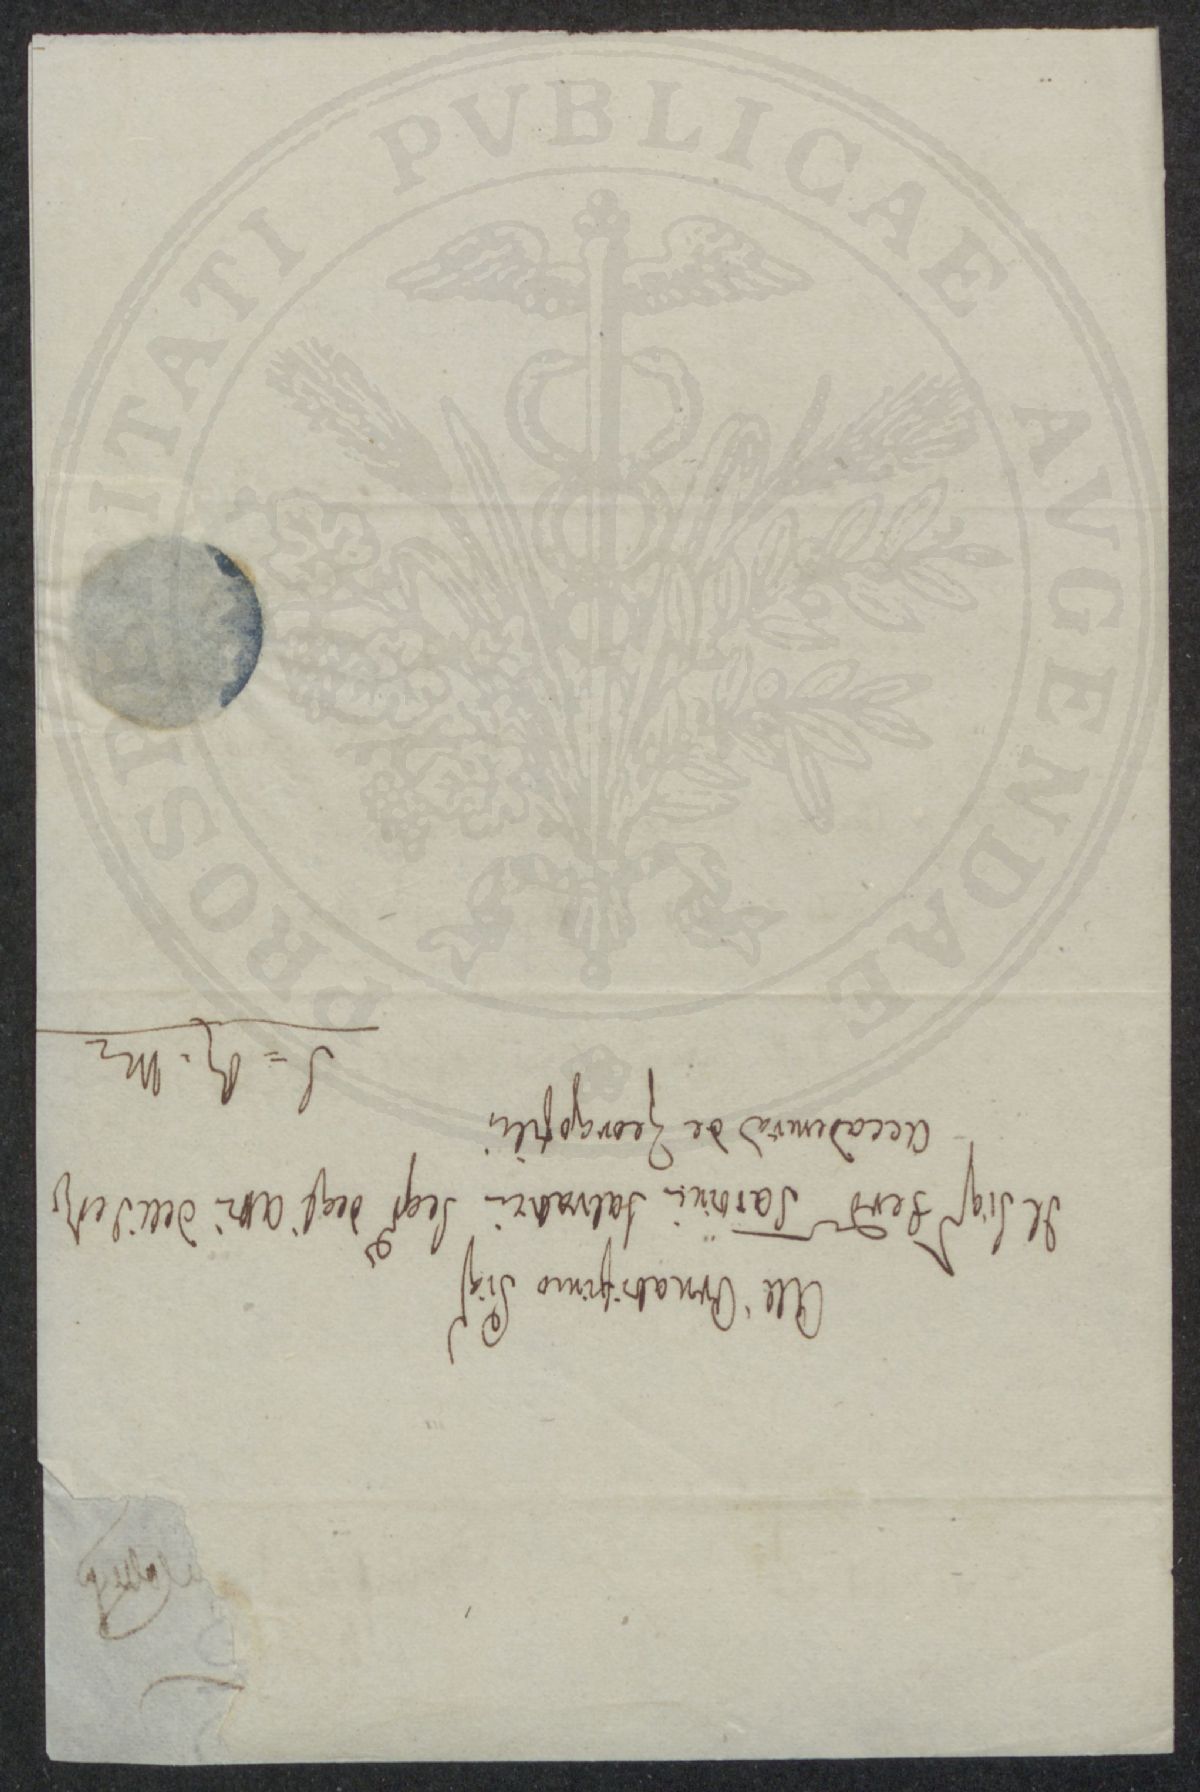 PROSPERITATI PUBLICAE AVGENDAE
All' Ornatissimo Sig.
Il Sig. Tartini Salvatici Seg. degli Atti dell'
Accademia de Georgofili
S = P. M.